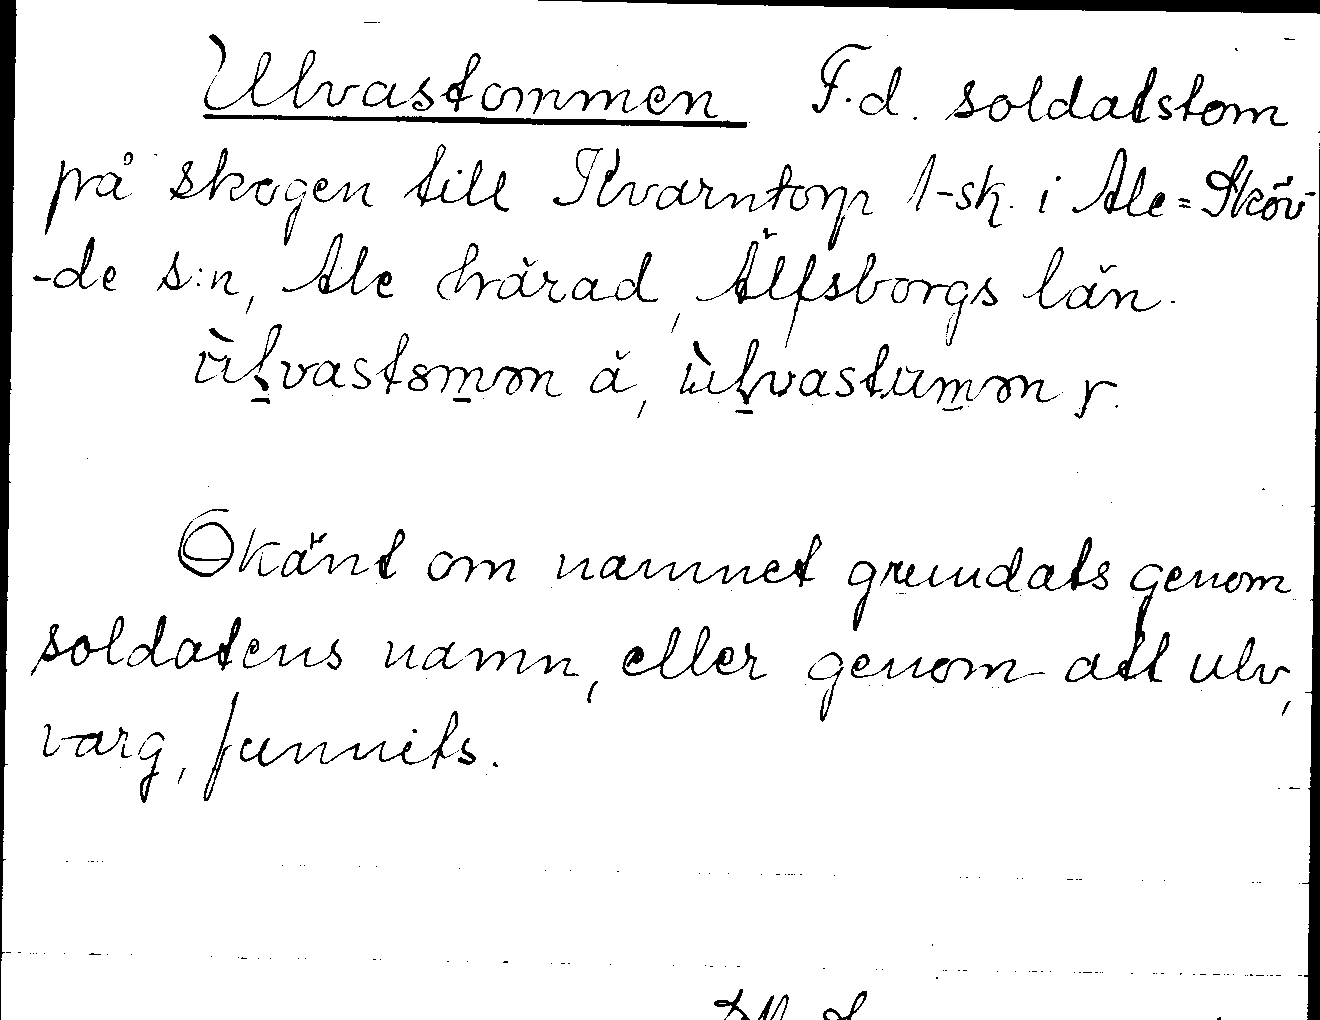 Ulvastommen F.d. soldatstom
på skogen till Kvarntorp 1-sk. i Ale=Sköv-
-de s:n, Ale härad, Älfsborgs län.
ùḻvastomən ä, ùḻvastumən y.
Okänt om namnet grundats genom
soldatens namn, eller genom att ulv,
varg, funnits.